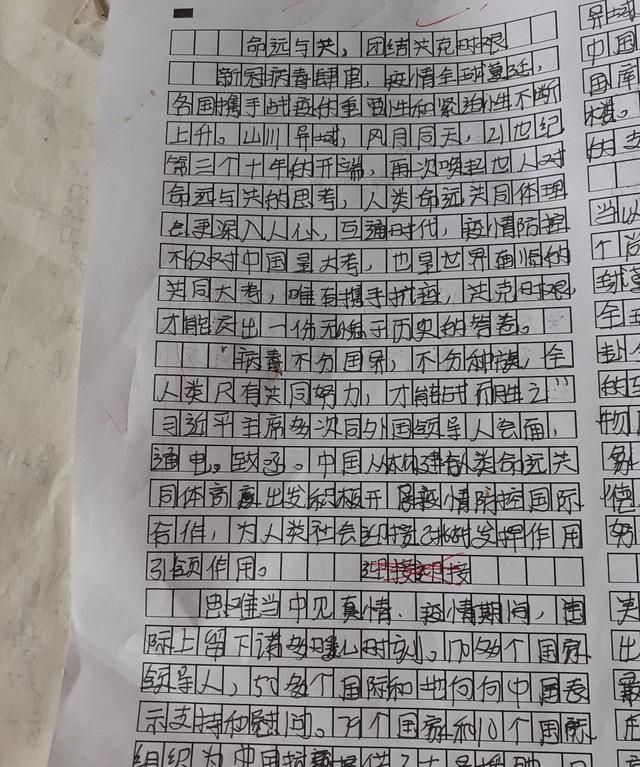 命远与共，团结共克时艰
新冠病毒肆虐，疫情全球蔓延，
各国携手战疫的重要性和紧迫性不断
上升。山川异域，风月同天，21世纪
第三个十年的开端，再次唤起世人对
命远与共的思考，人类命远共同体理
念更深入人心，互通时代，疫情防控
不仅对中国是大考，也是世界面临的
共同大考，唯有携手抗疫，共克时艰，
才能交出一份无愧于历史的答卷。
病毒不分国界，不分种族，全
人类只有共同努力，才能战而胜之”
习近平主席多次同外国领导人会面，
通电。致函。中国从构建人类命远共
同体高度出发积极开展疫情防控国际
合作，为人类社会迎接挑战发挥作用
引领作用。
患难当中见真情．疫情期间，国
际上留下诸多暖心时刻。170多个国家
领导人，50多个国际和地向中国表
示支持和慰问。79个国家和10个国际
组织为中国抗疫提供了
异域
中国
国库
楼。
的支
当以
个尚
球
全
卦
的
物
务
使
努
关
出
最